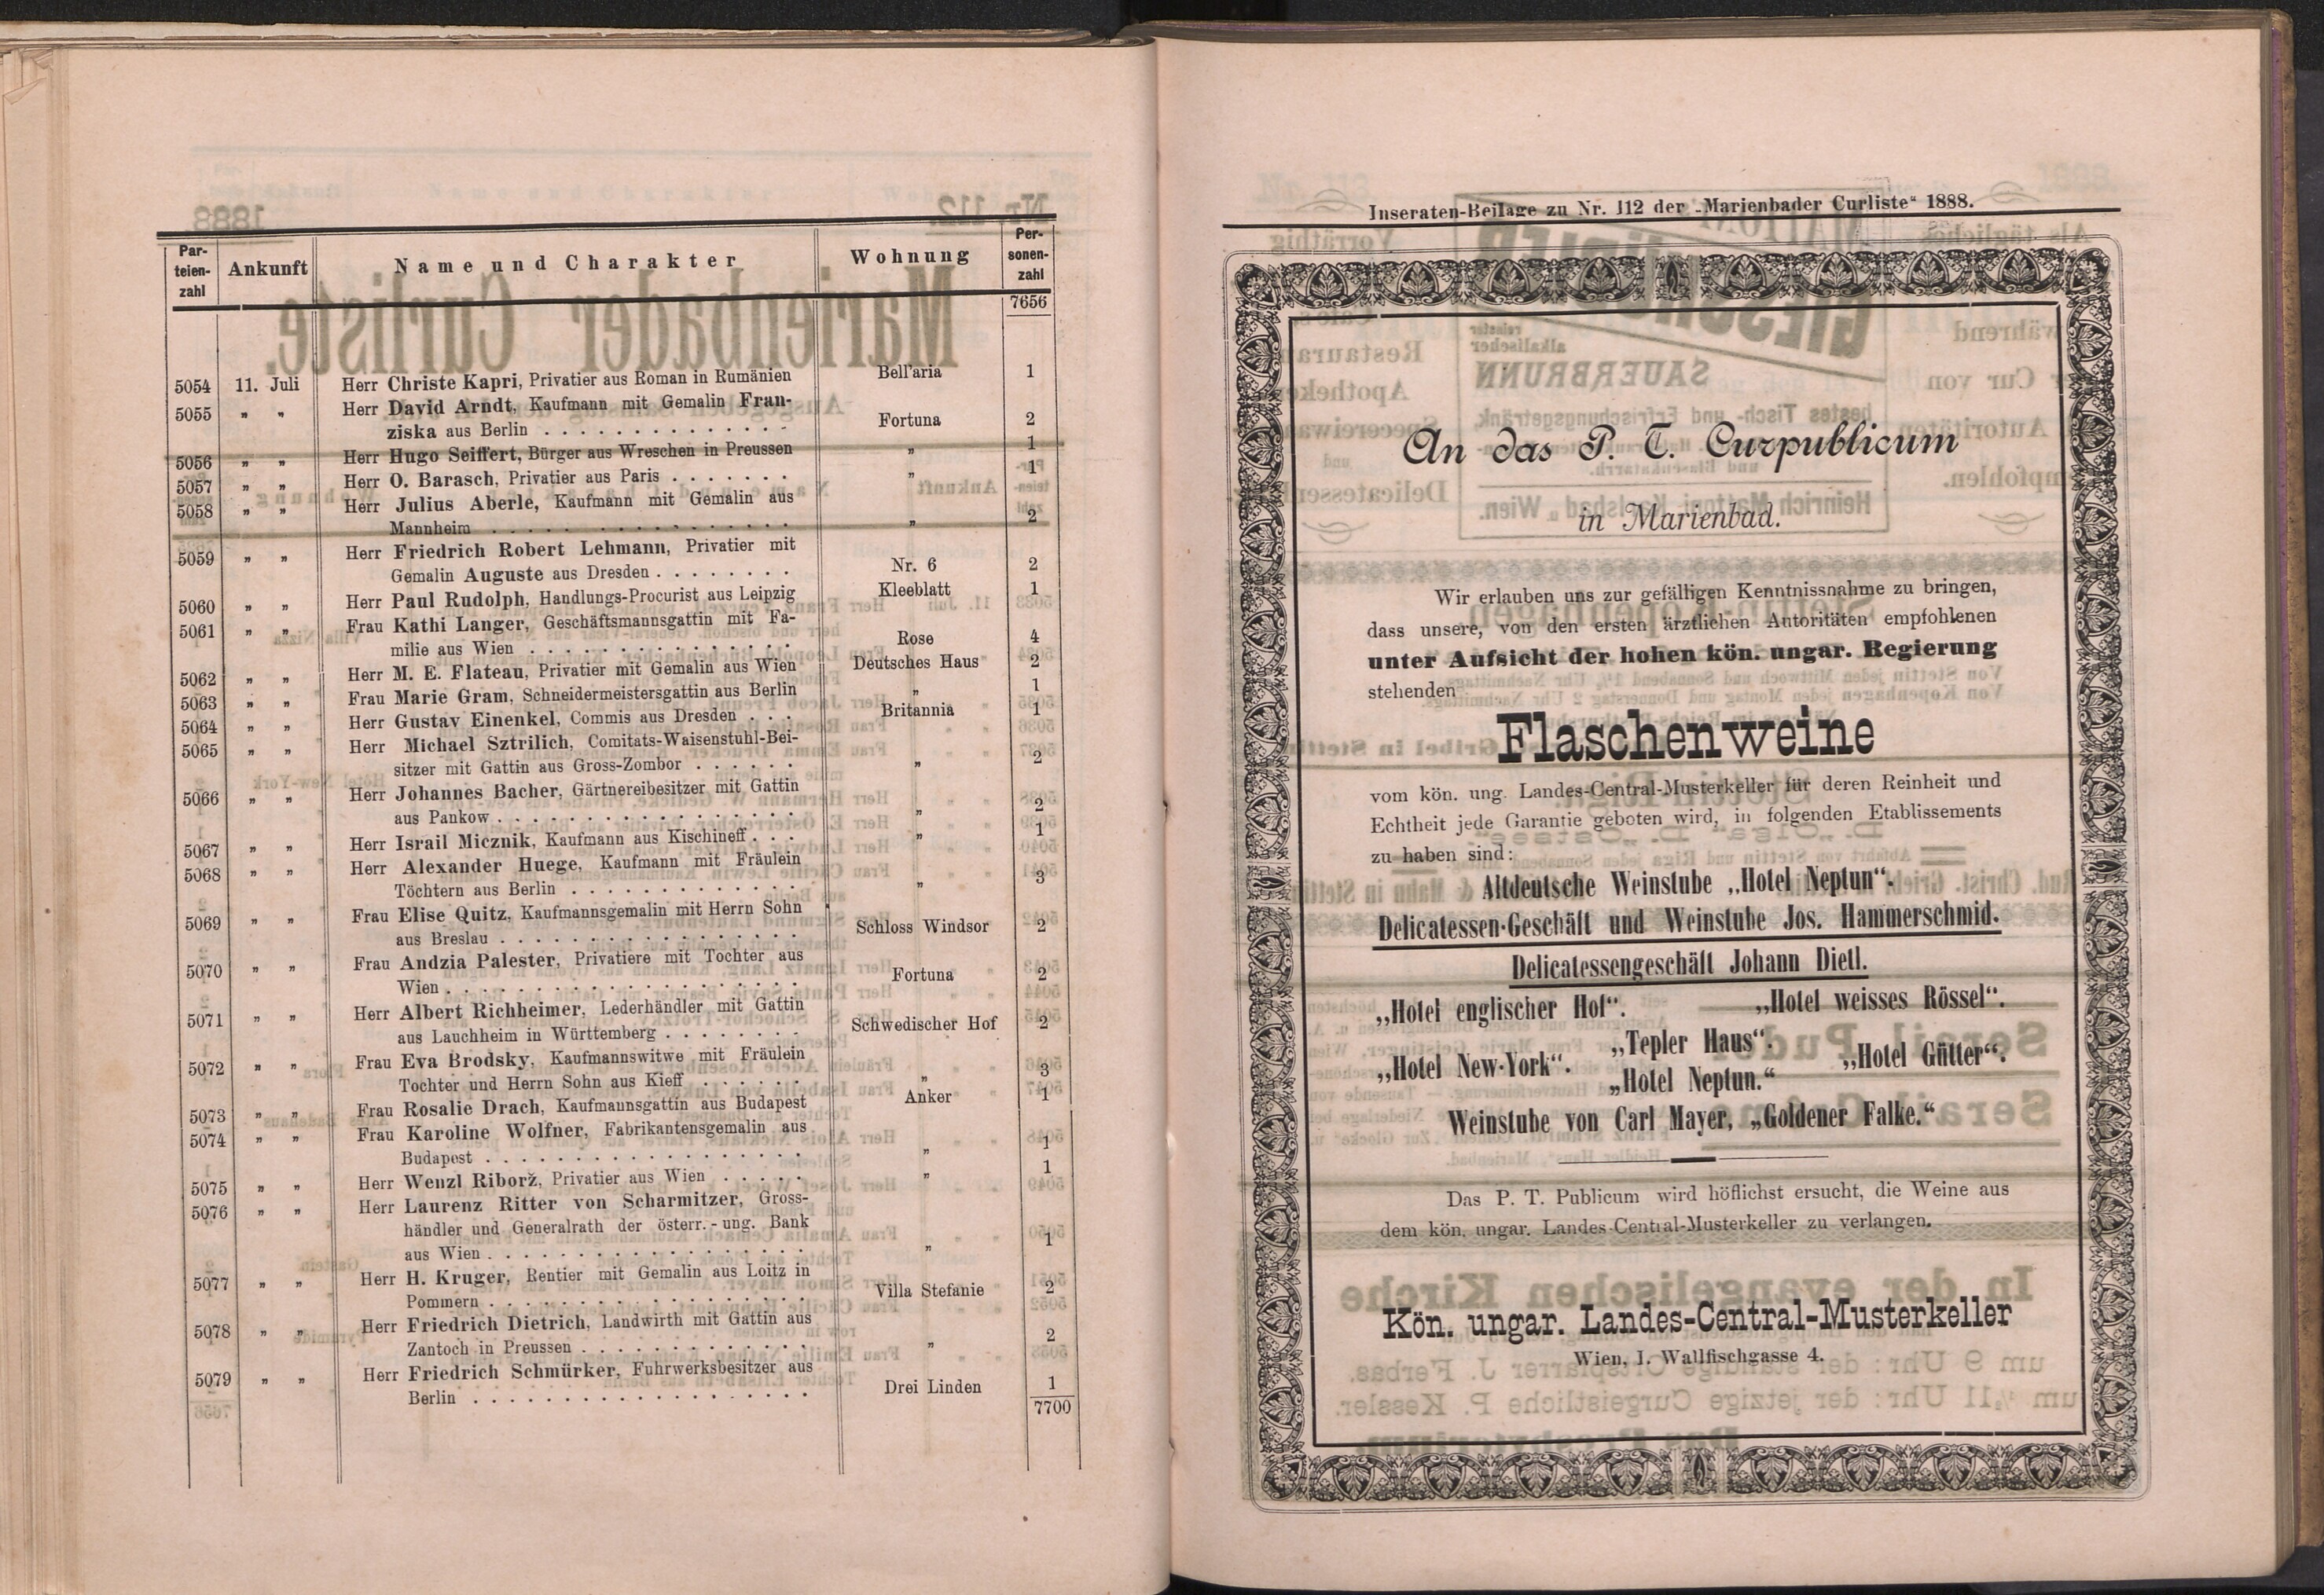 Par-
teien-
zahl
Ankunft
Name und Charakter
Wohnung
Per-
sonen-
zahl
7656
5054 11. Juli Herr Christe Kapri, Privatier aus Roman in Rumänien Bell'aria 1
5055 " " Herr David Arndt, Kaufmann mit Gemalin Fran-
ziska aus Berlin . . . . . . . . . . . . . . Fortuna 2
5056 " " Herr Hugo Seiffert, Bürger aus Wreschen in Preussen " 1
5057 " " Herr O. Barasch, Privatier aus Paris . . . . . . . " 1
5058 " " Herr Julius Aberle, Kaufmann mit Gemalin aus
Mannheim . . . . . . . . . . . . . . . . . " 2
5059 " " Herr Friedrich Robert Lehmann, Privatier mit
Gemalin Auguste aus Dresden . . . . . . . . Nr. 6 2
5060 " " Herr Paul Rudolph, Handlungs-Procurist aus Leipzig Kleeblatt 1
5061 " " Frau Kathi Langer, Geschäftsmannsgattin mit Fa-
milie aus Wien . . . . . . . . . . . . . . . Rose 4
5062 " " Herr M. E. Flateau, Privatier mit Gemalin aus Wien Deutsches Haus 2
5063 " " Frau Marie Gram, Schneidermeistersgattin aus Berlin " 1
5064 " " Herr Gustav Einenkel, Commis aus Dresden . . . Britannia 1
5065 " " Herr Michael Sztrilich, Comitats-Waisenstuhl-Bei-
sitzer mit Gattin aus Gross-Zombor . . . . . . " 2
5066 " " Herr Johannes Bacher, Gärtnereibesitzer mit Gattin
aus Pankow . . . . . . . . . . . . . . . . . " 2
5067 " " Herr Israil Micznik, Kaufmann aus Kischineff . . . " 1
5068 " " Herr Alexander Huege, Kaufmann mit Fräulein
Töchtern aus Berlin . . . . . . . . . . . . . " 3
5069 " " Frau Elise Quitz, Kaufmannsgemalin mit Herrn Sohn
aus Breslau . . . . . . . . . . . . . . . . . Schloss Windsor 2
5070 " " Frau Andzia Palester, Privatiere mit Tochter aus
Wien . . . . . . . . . . . . . . . . . . . . Fortuna 2
5071 " " Herr Albert Richheimer, Lederhändler mit Gattin
aus Lauchheim in Württemberg . . . . . . . . Schwedischer Hof 2
5072 " " Frau Eva Brodsky, Kaufmannswitwe mit Fräulein
Tochter und Herrn Sohn aus Kieff . . . . . . " 3
5073 " " Frau Rosalie Drach, Kaufmannsgattin aus Budapest Anker 1
5074 " " Frau Karoline Wolfner, Fabrikantensgemalin aus
Budapest . . . . . . . . . . . . . . . . . . " 1
5075 " " Herr Wenzl Riborž, Privatier aus Wien . . . . . " 1
5076 " " Herr Laurenz Ritter von Scharmitzer, Gross-
händler und Generalrath der österr.-ung. Bank
aus Wien . . . . . . . . . . . . . . . . . . " 1
5077 " " Herr H. Kruger, Rentier mit Gemalin aus Loitz in
Pommern . . . . . . . . . . . . . . . . . . Villa Stefanie 2
5078 " " Herr Friedrich Dietrich, Landwirth mit Gattin aus
Zantoch in Preussen . . . . . . . . . . . . . " 2
5079 " " Herr Friedrich Schmürker, Fuhrwerksbesitzer aus
Berlin . . . . . . . . . . . . . . . . . . . Drei Linden 1
7700
Inseraten-Beilage zu Nr. 112 der „Marienbader Curliste" 1888.
An das P. T. Curpublicum
in Marienbad.
Wir erlauben uns zur gefälligen Kenntnissnahme zu bringen,
dass unsere, von den ersten ärztlichen Autoritäten empfohlenen
unter Aufsicht der hohen kön. ungar. Regierung
stehenden
Flaschenweine
vom kön. ung. Landes-Central-Musterkeller für deren Reinheit und
Echtheit jede Garantie geboten wird, in folgenden Etablissements
zu haben sind:
Altdeutsche Weinstube „Hotel Neptun“.
Delicatessen-Geschäft und Weinstube Jos. Hammerschmid.
Delicatessengeschäft Johann Dietl.
„Hotel englischer Hof“. „Hotel weisses Rössel“.
„Tepler Haus“.
„Hotel New-York“. „Hotel Gütter“.
„Hotel Neptun.“
Weinstube von Carl Mayer, „Goldener Falke.“
Das P. T. Publicum wird höflichst ersucht, die Weine aus
dem kön. ungar. Landes-Central-Musterkeller zu verlangen.
Kön. ungar. Landes-Central-Musterkeller
Wien, I. Wallfischgasse 4.